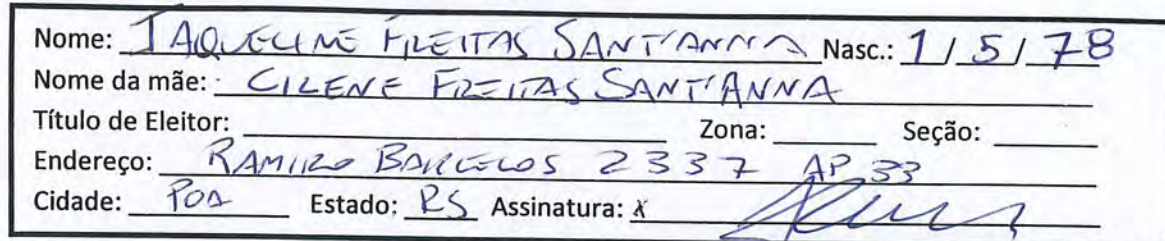 Nome: JAQUELINE FREITAS SANT'ANNA Nasc.: 1/5/78
Nome da mãe: CILENE FREITAS SANT'ANNA
Título de Eleitor: Zona: Seção:
Endereço: RAMIRO BARCELOS 2337 AP 33
Cidade: POA Estado: RS Assinatura: x